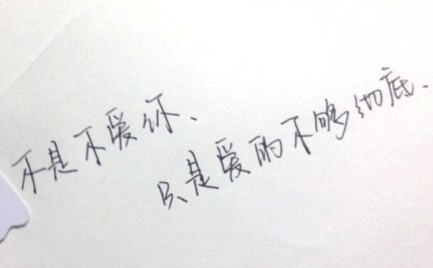 不是不爱你、
只是爱的不够彻底.